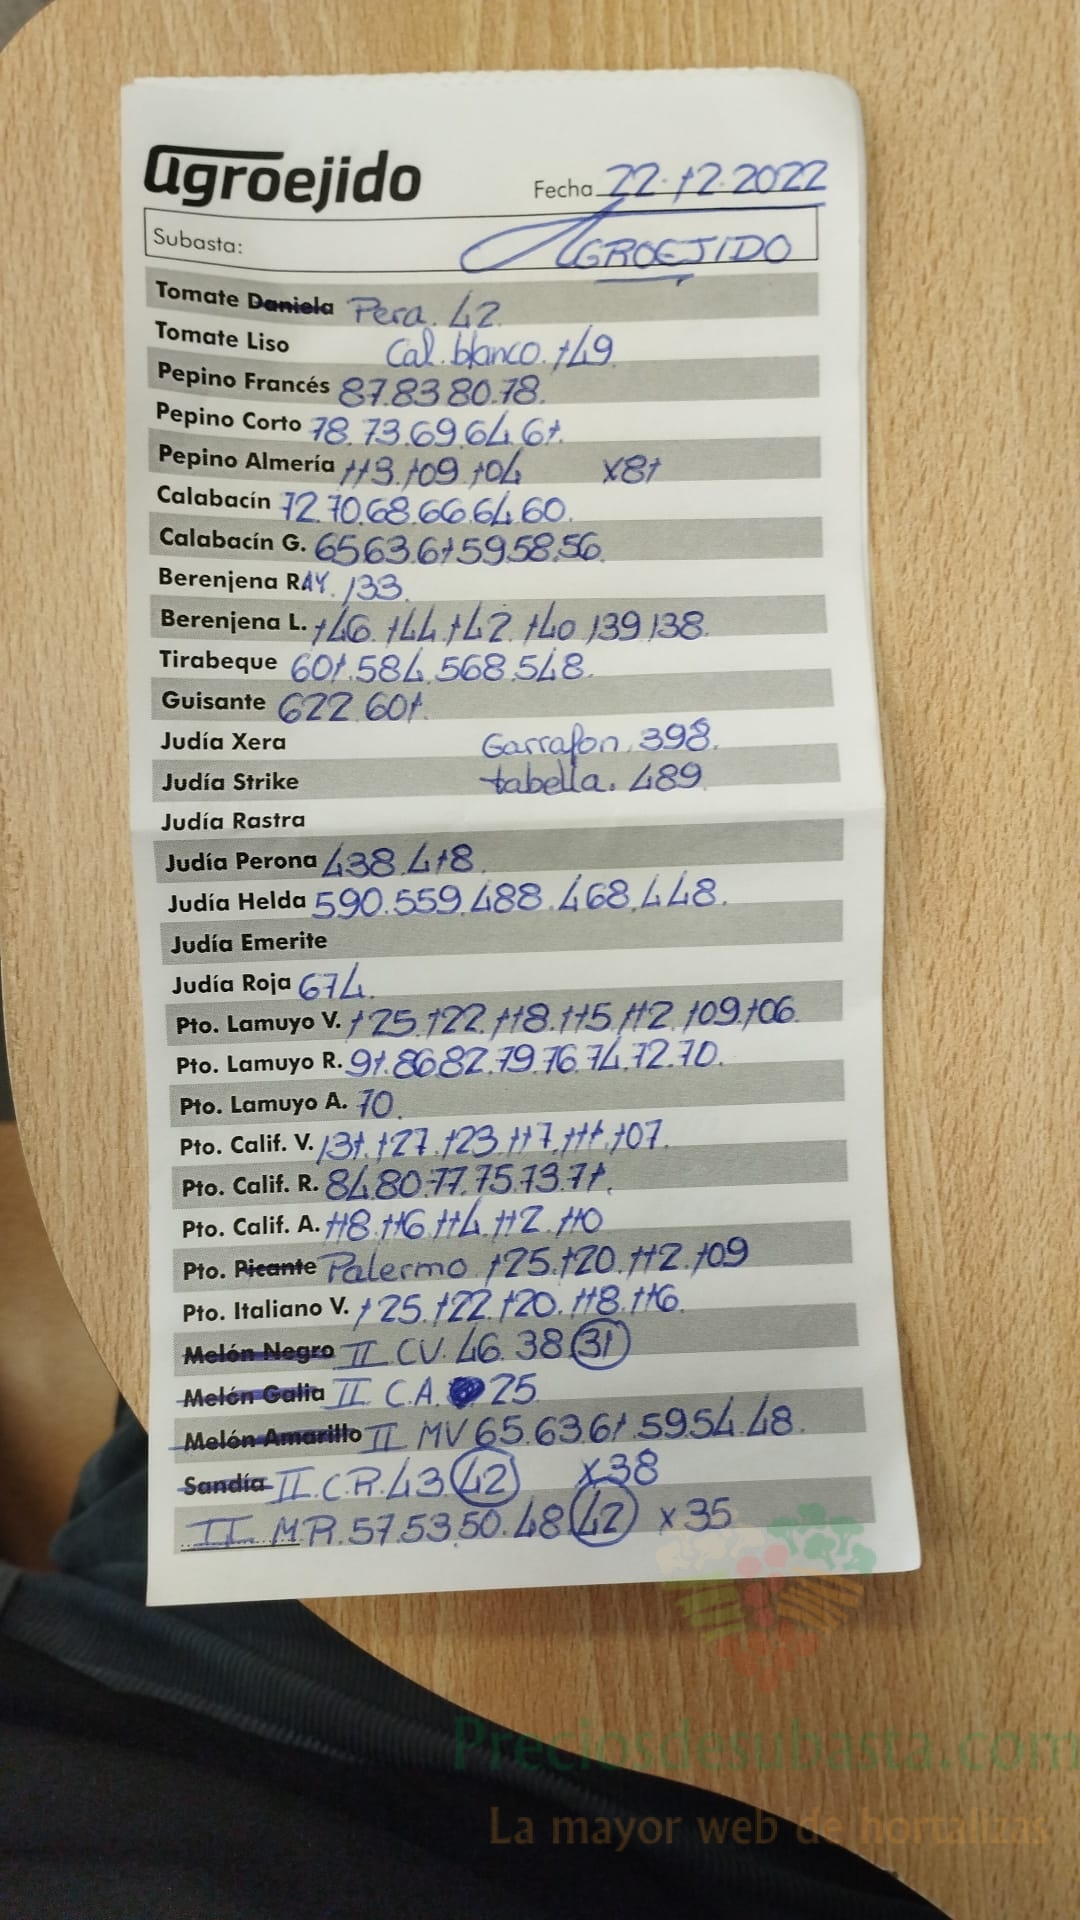 agroejido
Fecha 22.12.2022
Subasta: AGROEJIDO
Tomate Daniela Pera. 42
Tomate Liso Cal. blanco. 149
Pepino Francés 87.83 80.78.
Pepino Corto 78.73.69.64.61.
Pepino Almería 113.109.104 x81
Calabacín 72.70.68.66.64.60.
Calabacín G. 65 63.61 59.58.56.
Berenjena RAY. 133.
Berenjena L. 146.144.142.140.139.138.
Tirabeque 601.584.568.548.
Guisante 622.601.
Judía Xera Garrafon. 398.
Judía Strike tabella. 489.
Judía Rastra
Judía Perona 438.418.
Judía Helda 590.559.488.468.448.
Judía Emerite
Judía Roja 674.
Pto. Lamuyo V. 125.122.118.115.112.109.106.
Pto. Lamuyo R. 91.86.82.79.76.74.72.70.
Pto. Lamuyo A. 70.
Pto. Calif. V. 131.127.123.117.111.107.
Pto. Calif. R. 84.80.77.75.73.71.
Pto. Calif. A. 118.116.114.112.110
Pto. Picante Palermo 125.120.112.109
Pto. Italiano V. 125.122.120.118.116.
Melón Negro II CV. 46.38 31
Melón Galia II C.A. 25
Melón Amarillo II MV 65.63.61.59.54.48.
Sandía II.C.R.43 42 x38
II MR.57.53.50.48 42 x35
Preciosdesubasta.com
La mayor web de hortalizas